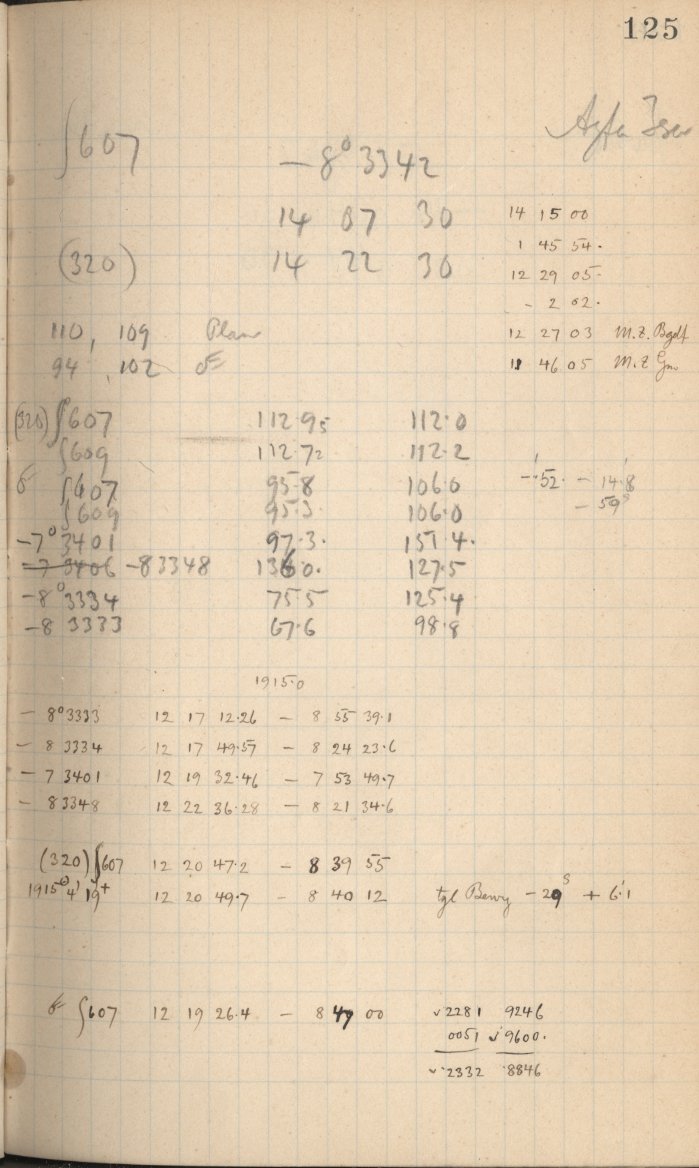 125
Agfa Isar
∫607 −8° 3342
14 07 30
(320) 14 22 30
14 15 00
1 45 54.
12 29 05
- 2 02.
12 27 03 M.Z. Bgdf
11 46 05 M.Z Gm
110, 109 Plan
94, 102
(320) ∫607 112.95 112.0
∫609 112.72 112.2
∫607 95.8 106.0 −52. − 14.8
∫609 95.3 106.0 − 59s
−7° 3401 97.3. 151.4.
−7 3406 −8 3348 136.0. 127.5
−8° 3334 75.5 125.4
−8 3333 67.6 98.8
1915.0
− 8° 3333 12 17 12.26 − 8 55 39.1
− 8 3334 12 17 49.57 − 8 24 23.6
− 7 3401 12 19 32.46 − 7 53 49.7
− 8 3348 12 22 36.28 − 8 21 34.6
(320) ∫607 12 20 47.2 − 8 39 55
1915 4 19+ 12 20 49.7 − 8 40 12 tgl Bewg −29s + 6'.1
∫607 12 19 26.4 − 8 49 00
√2281 9246
0051 √9600.
√.2332 .8846